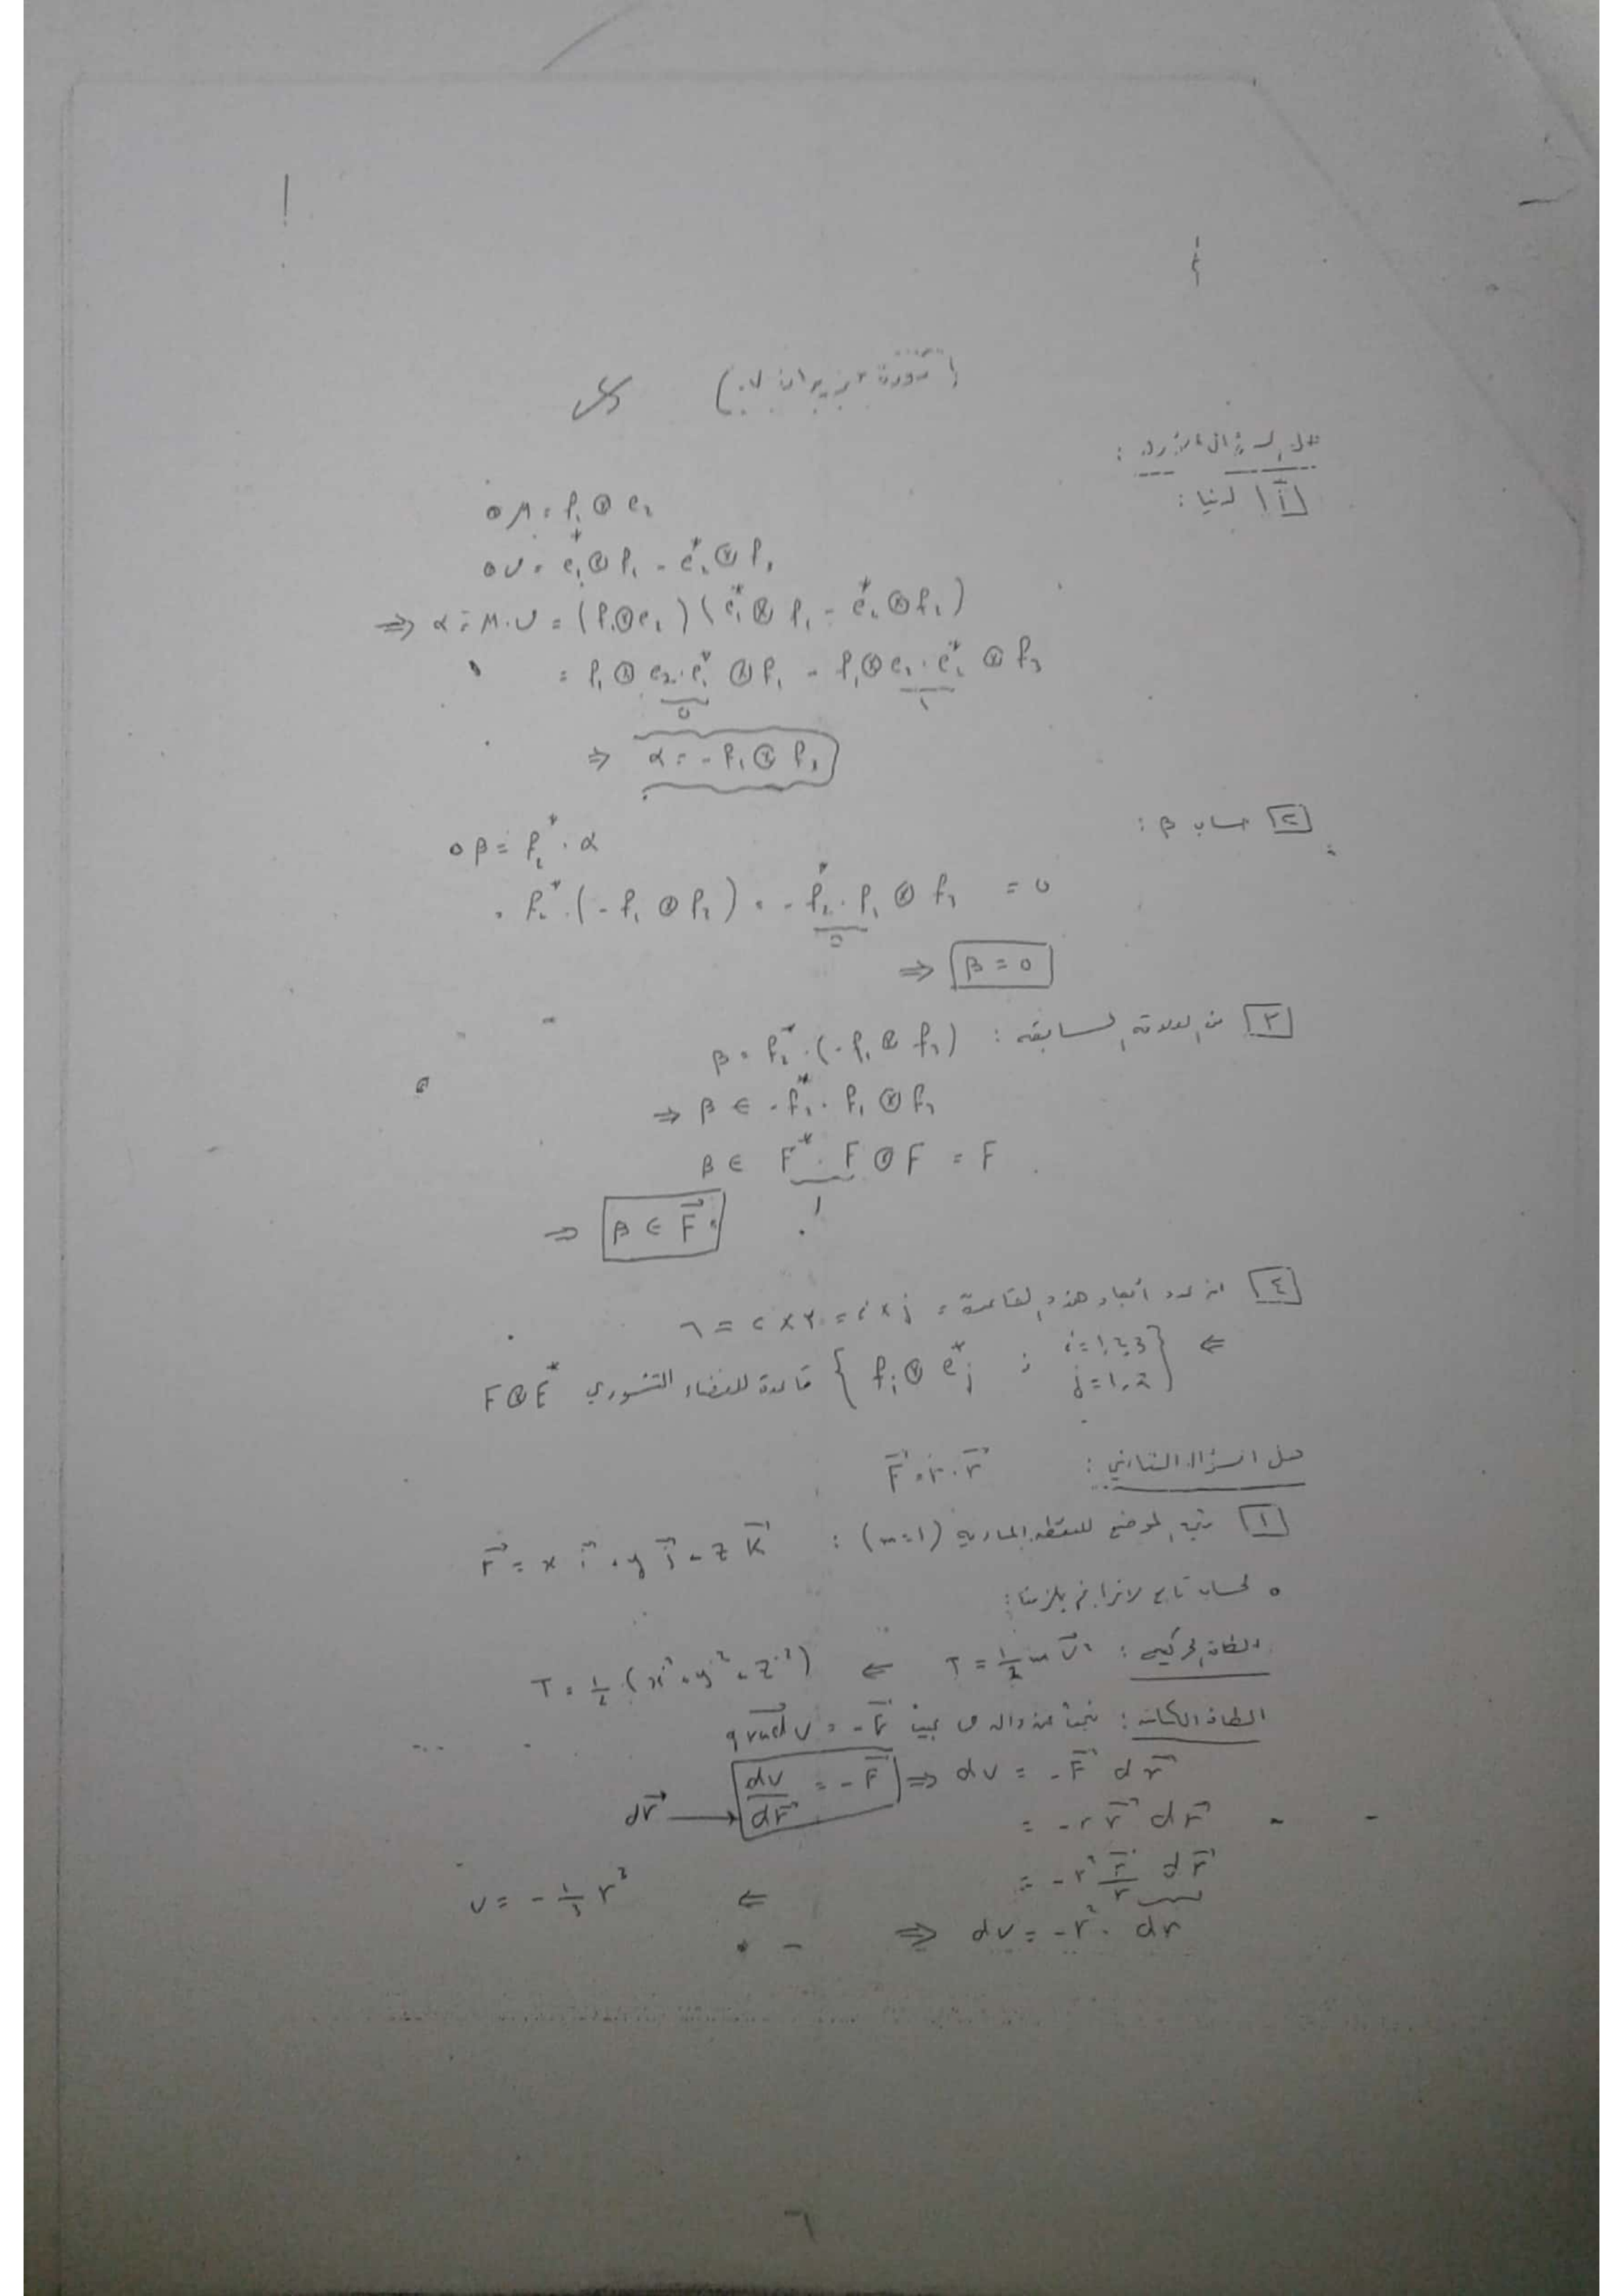 حل السؤال الأول :
[أ] لدينا :
• μ = f₁ ⊗ e₂
• ν = e₁* ⊗ f₁ - e₂* ⊗ f₃
⇒ α = μ.ν = (f₁⊗e₂)(e₁* ⊗ f₁ - e₂* ⊗ f₃)
= f₁ ⊗ e₂.e₁* ⊗ f₁ - f₁⊗e₂.e₂* ⊗ f₃
0 1
⇒ α = - f₁ ⊗ f₃
[٢] حساب β :
• β = f₂* . α
= f₂* . (- f₁ ⊗ f₃) = - f₂* . f₁ ⊗ f₃ = 0
0
⇒ β = 0
[٣] من العلاقة السابقة : β = f₂* . (- f₁ ⊗ f₃)
⇒ β ∈ - f₂* . f₁ ⊗ f₃
β ∈ F* . F ⊗ F = F
1
⇒ β ∈ F⃗
[٤] ان عدد أبعاد هذه القاعدة = i×j = ٣×٢ = ٦
⇐ { fᵢ ⊗ eⱼ* ; i=1,2,3 j=1,2 } قاعدة للفضاء التنسوري F⊗E*
حل السؤال الثاني : F⃗ = r . r⃗
[١] الموضع للنقطة المادية (m=1) : r⃗ = x i⃗ + y j⃗ + z k⃗
• لحساب تابع لاغرانج يلزمنا :
الطاقة الحركية : T = ½ m v⃗² ⇐ T = ½ (x˙² + y˙² + z˙²)
الطاقة الكامنة : نبحث عن دالة بحيث grad v = - F⃗
dv/dr⃗ = - F⃗ ⇒ dv = - F⃗ dr⃗
dr⃗ → = - r r⃗ dr⃗
= - r² r⃗/r dr⃗
⇒ dv = - r² . dr ⇐ v = - ⅓ r³
٦